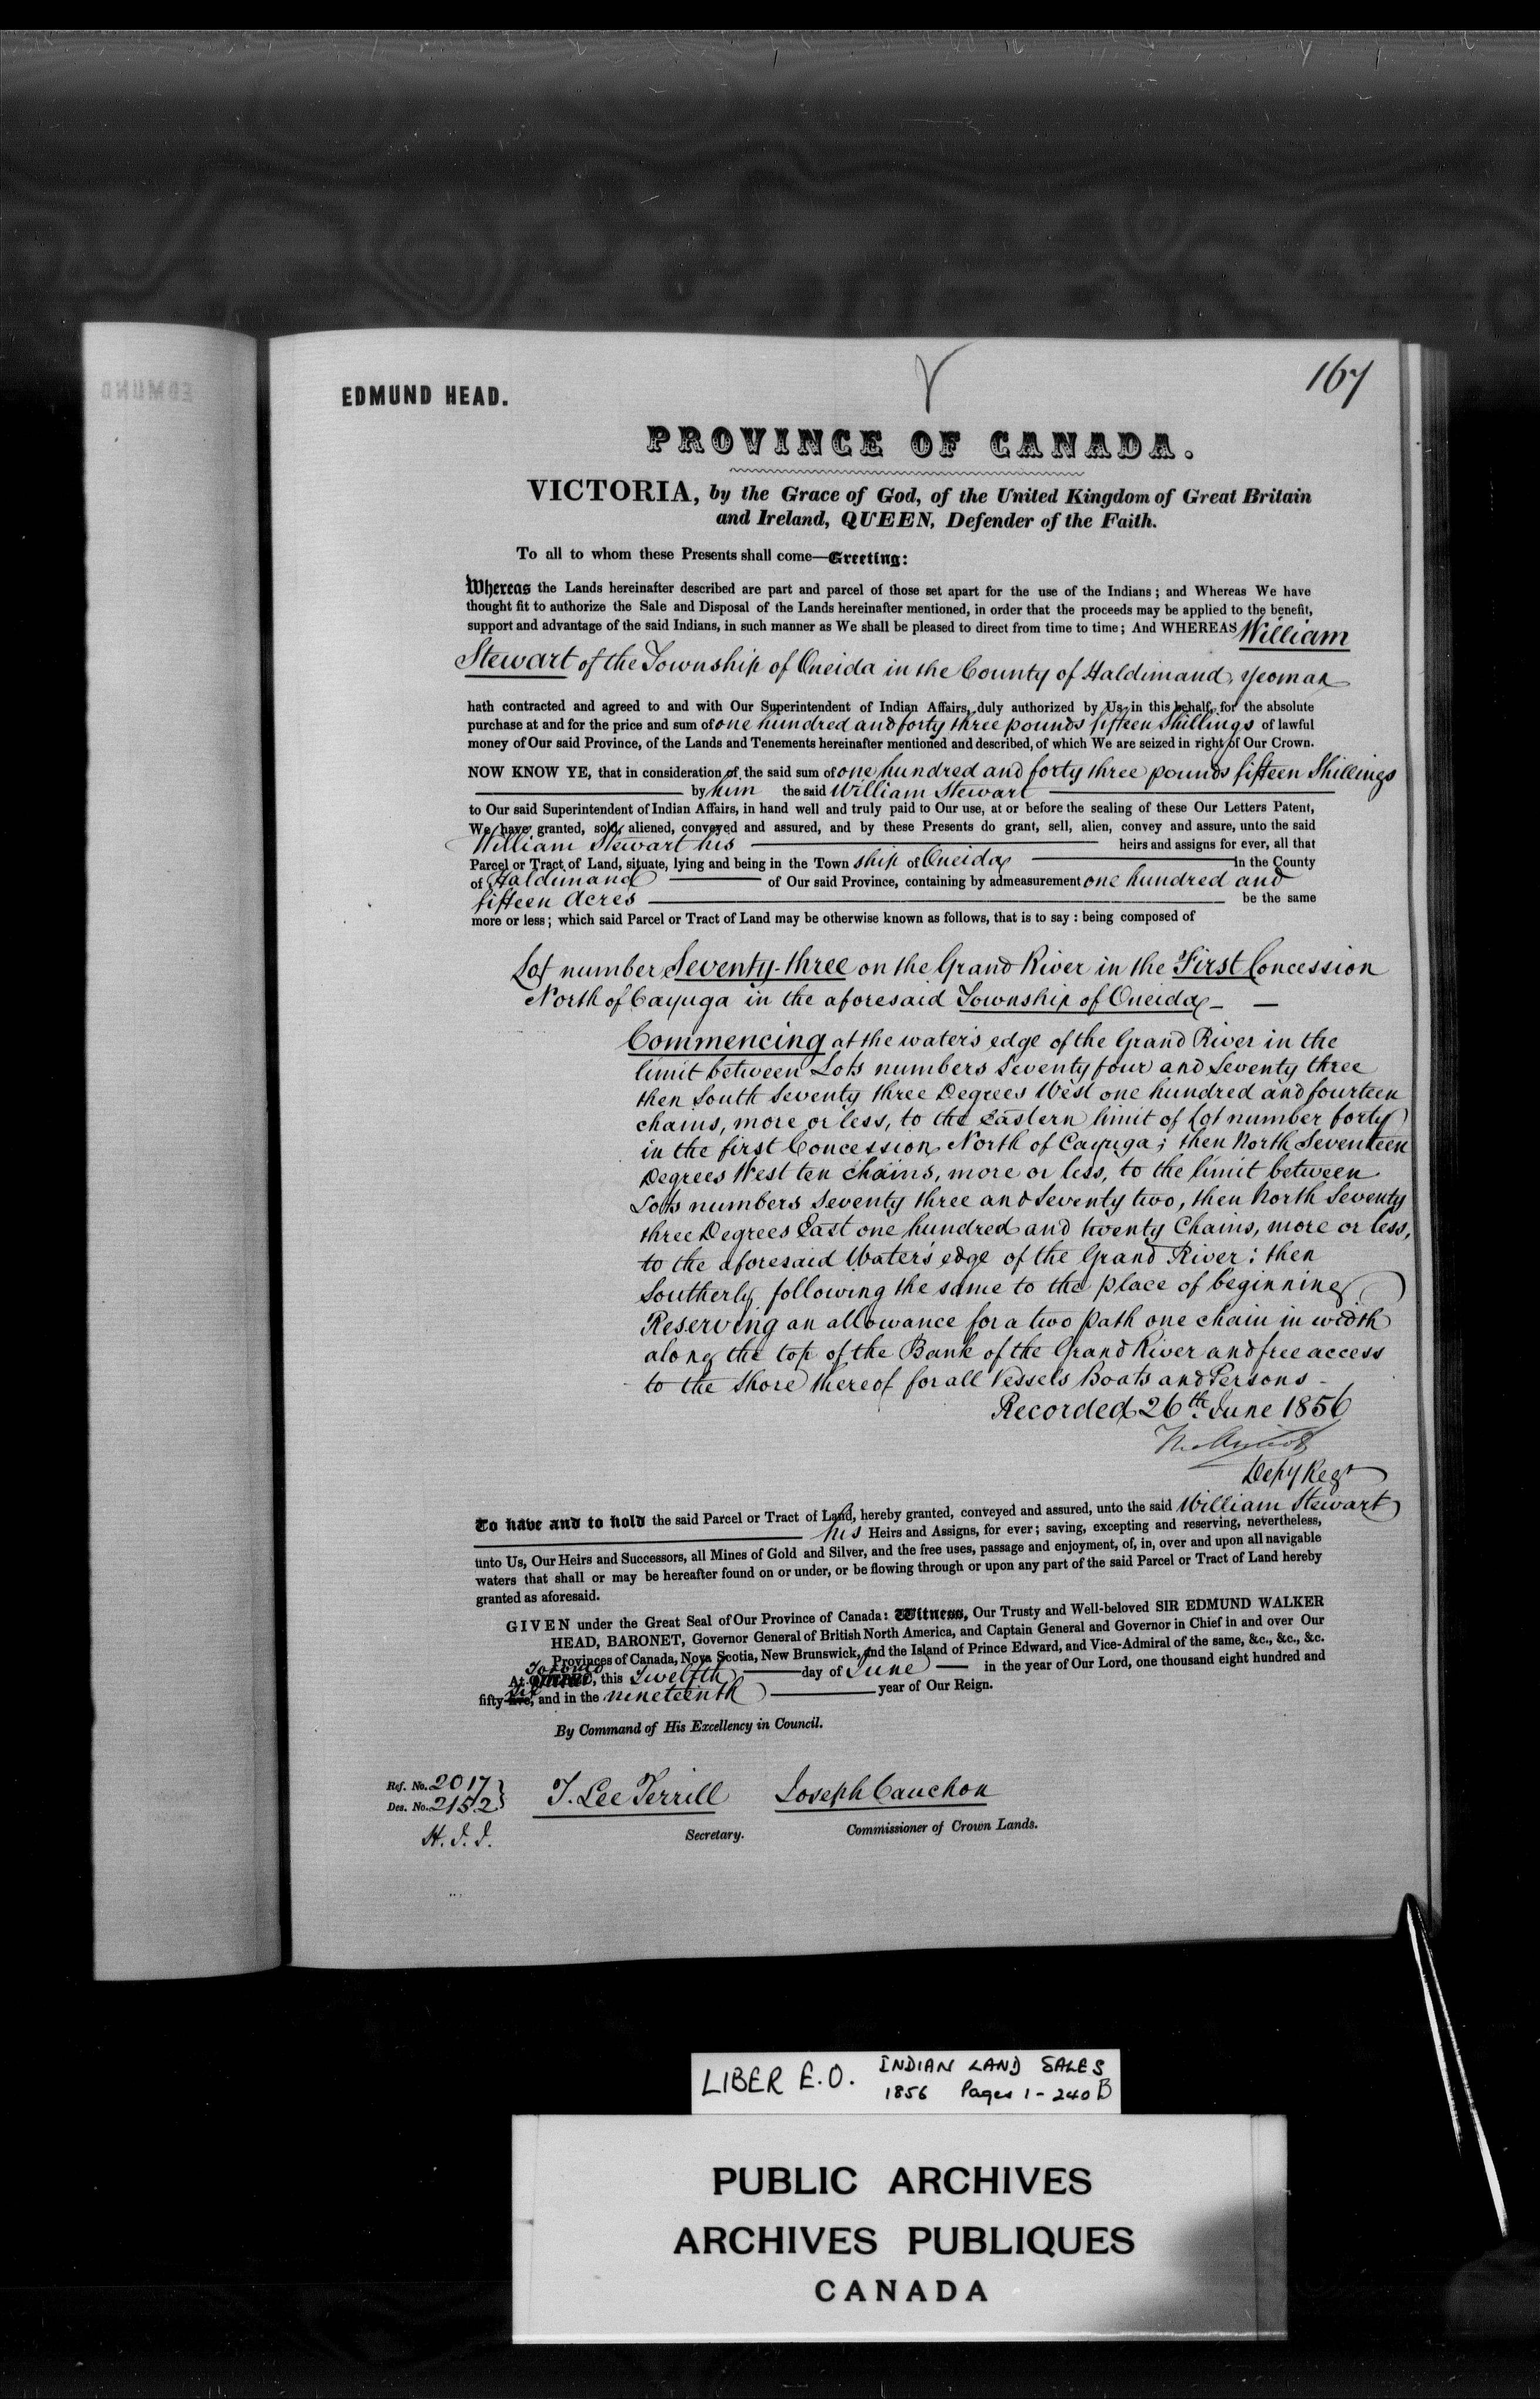 167
EDMUND HEAD.
PROVINCE OF CANADA.
VICTORIA, by the Grace of God, of the United Kingdom of Great Britain
and Ireland, QUEEN, Defender of the Faith.
To all to whom these Presents shall come—Greeting:
Whereas the Lands hereinafter described are part and parcel of those set apart for the use of the Indians; and Whereas We have
thought fit to authorize the Sale and Disposal of the Lands hereinafter mentioned, in order that the proceeds may be applied to the benefit,
support and advantage of the said Indians, in such manner as We shall be pleased to direct from time to time; And WHEREAS William
Stewart of the Township of Oneida in the County of Haldimand, yeoman
hath contracted and agreed to and with Our Superintendent of Indian Affairs, duly authorized by Us in this behalf, for the absolute
purchase at and for the price and sum of one hundred and forty three pounds fifteen Shillings of lawful
money of Our said Province, of the Lands and Tenements hereinafter mentioned and described, of which We are seized in right of Our Crown.
NOW KNOW YE, that in consideration of the said sum of one hundred and forty three pounds fifteen Shillings
by him the said William Stewart
to Our said Superintendent of Indian Affairs, in hand well and truly paid to Our use, at or before the sealing of these Our Letters Patent,
We have granted, sold, aliened, conveyed and assured, and by these Presents do grant, sell, alien, convey and assure, unto the said
William Stewart his heirs and assigns for ever, all that
Parcel or Tract of Land, situate, lying and being in the Town ship of Oneida in the County
of Haldimand of Our said Province, containing by admeasurement one hundred and
fifteen Acres be the same
more or less; which said Parcel or Tract of Land may be otherwise known as follows, that is to say: being composed of
Lot number Seventy-three on the Grand River in the First Concession
North of Cayuga in the aforesaid Township of Oneida - —
Commencing at the water's edge of the Grand River in the
limit between Lots numbers Seventy four and Seventy three
then South Seventy three Degrees West one hundred and fourteen
chains, more or less, to the Eastern limit of Lot number forty
in the first Concession North of Cayuga; then North Seventeen
Degrees West ten chains, more or less, to the limit between
Lots numbers Seventy three and Seventy two, then North Seventy
three Degrees East one hundred and twenty Chains, more or less,
to the aforesaid Water's edge of the Grand River: then
Southerly following the same to the place of beginning
Reserving an allowance for a two path one chain in width
along the top of the Bank of the Grand River and free access
to the Shore thereof for all Vessels Boats and Persons -
Recorded 26th June 1856
Depy Regr
To have and to hold the said Parcel or Tract of Land, hereby granted, conveyed and assured, unto the said William Stewart
his Heirs and Assigns, for ever; saving, excepting and reserving, nevertheless,
unto Us, Our Heirs and Successors, all Mines of Gold and Silver, and the free uses, passage and enjoyment, of, in, over and upon all navigable
waters that shall or may be hereafter found on or under, or be flowing through or upon any part of the said Parcel or Tract of Land hereby
granted as aforesaid.
GIVEN under the Great Seal of Our Province of Canada: Witness, Our Trusty and Well-beloved SIR EDMUND WALKER
HEAD, BARONET, Governor General of British North America, and Captain General and Governor in Chief in and over Our
Provinces of Canada, Nova Scotia, New Brunswick, and the Island of Prince Edward, and Vice-Admiral of the same, &c., &c., &c.
At Toronto, this Twelfth day of June in the year of Our Lord, one thousand eight hundred and
fifty six, and in the nineteenth year of Our Reign.
By Command of His Excellency in Council.
Ref. No. 2017
Des. No. 2152
H. J. J.
T. Lee Terrill
Secretary.
Joseph Cauchon
Commissioner of Crown Lands.
LIBER E.O. INDIAN LAND SALES
1856 Pages 1-240B
PUBLIC ARCHIVES
ARCHIVES PUBLIQUES
CANADA